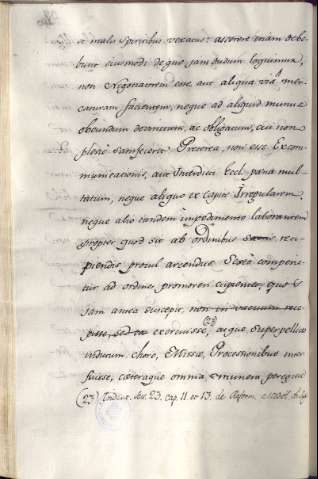 a malis spiritibus vexatus: asserere etiam debe-
bunt eiusmodi de quo jam dudum loquimur,
non Negotiatorem esse aut aliqua via mer-
caturam facientem, neque ad aliquid munus
obeundum devinctum, ac obligatum, cui non
plenè satisfecerit. Preterea, non esse Excom-
municationis, aut Interdicti Eccl. pœna mul-
tatum, neque aliquo ex Capite Irregularem,
neque alio tandem impedimento laborantem
propter quod sit ab Ordinibus reci-
piendis procul arcendus. Sexto
ad ordines promoveri cupientes, quos
jam antea suscepit, non in vacuum rece-
pisse, sed exercuisse, (23) atque Superpelliceo
indutum choro, Missæ, Processionibus inter-
fuisse, cæteraque omnia munera peregisse
(23) Trident. ses. 23. cap. 11 et 13. de Reform.